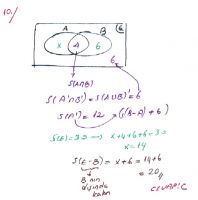 10./
A B E
x 4 6
6
S(A∩B)
S(A'∩B') = S(A∪B)' = 6
S(A') = 12 → (S(B-A) + 6)
S(E) = 30 → x+4+6+6=3
x = 14
S(E-B) = x+6 = 14+6
= 20
B nin
dışında
kalan
CEVAP: C